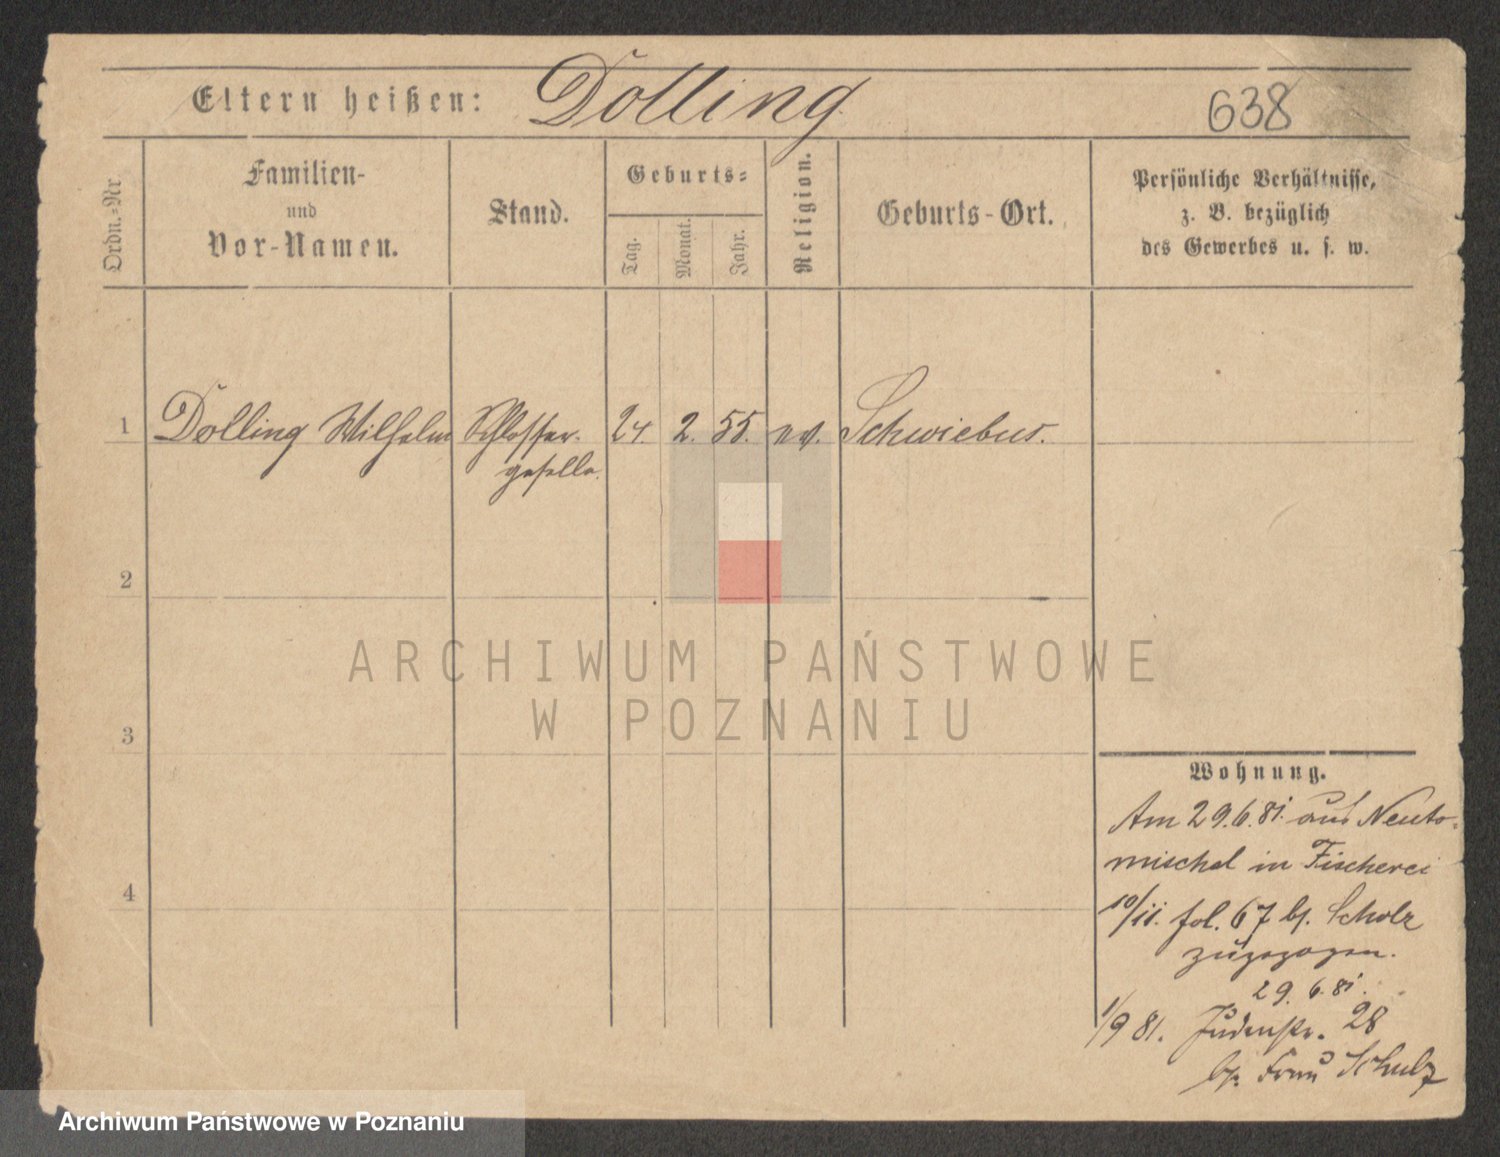 Eltern heißen: Dolling
638
Ordn.-Nr.
Familien-
und
Vor-Namen.
Stand.
Geburts-
Tag.
Monat.
Jahr.
Religion.
Geburts-Ort.
Persönliche Verhältnisse,
z. B. bezüglich
des Gewerbes u. s. w.
1 Dolling Wilhelm Schlosser- 24. 2. 55. ev. Schwiebus.
geselle.
2
3
4
ARCHIWUM PAŃSTWOWE
W POZNANIU
Wohnung.
Am 29.6.81. aus Neuto-
mischel in Fischerei
10/11. fol. 67 bj. Scholz
zugezogen.
29. 6. 81.
1/9 81. Judenstr. 28
bj. Frau Schulz
Archiwum Państwowe w Poznaniu